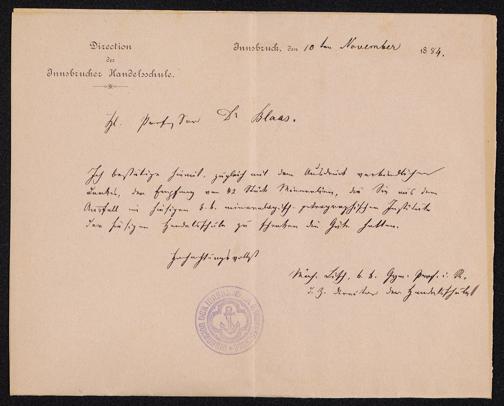 Direction
der
Innsbrucher Handelsschule.
Innsbruck, den 10ten November 1884.
Hl. Professor Dr Blaas.
Ich bestätige hiemit, zugleich mit dem Ausdruck verbindlichen
Dankes, den Empfang von 42 Stück Mineralien, die Sie aus dem
im hiesigen k. k. mineralogisch petrographischen Institute
der hiesigen Handelsschule zu schenken die Güte hatten.
Hochachtungsvollst
k. k. Gym. Prof. i. R.
d. Z. Direktor der Handelsschule